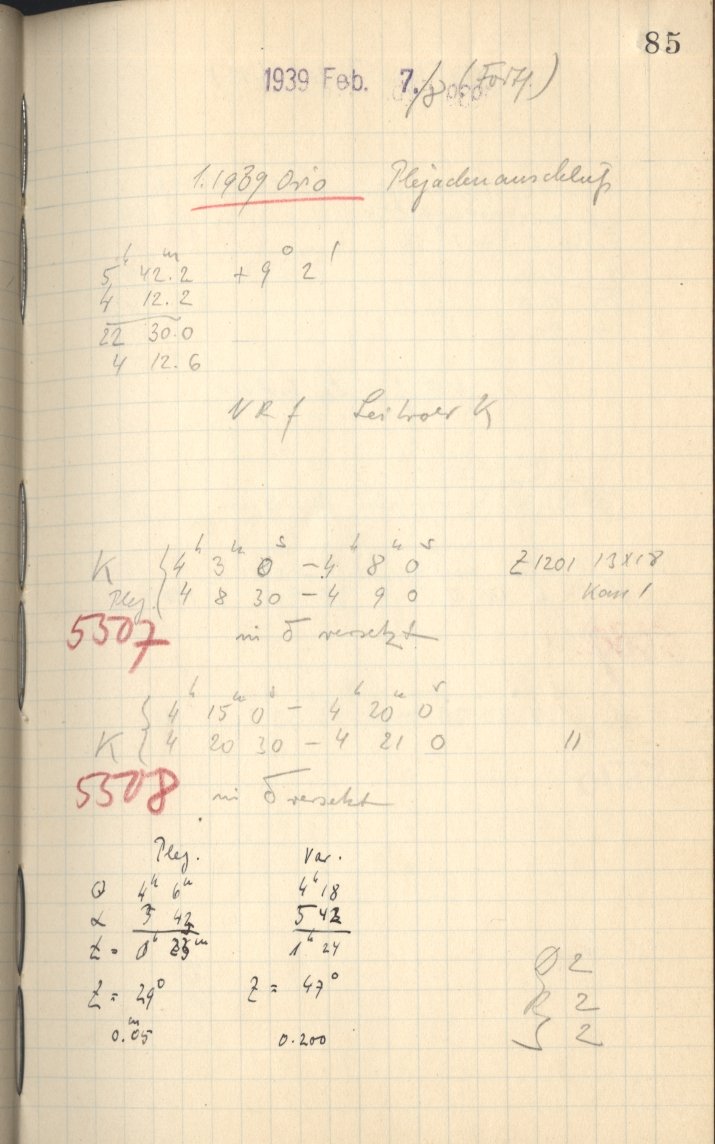 85
1939 Feb. 7./8 (Forts.)
1.1939 Orio Plejadenanschluß
5ʰ 42.ᵐ2 + 9° 2'
4 12.2
22 30.0
4 12.6
NR f K
K { 4ʰ 3ᵐ 0ˢ – 4ʰ 8ᵐ 0ˢ Z1201 13x18
Plej. { 4 8 30 – 4 9 0 Kass 1
5507 in δ versetzt
{ 4ʰ 15ᵐ 0ˢ – 4ʰ 20ᵐ 0ˢ
K { 4 20 30 – 4 21 0 "
5508 in δ versetzt
Plej. Var.
Θ 4ʰ 6ᵐ 4ʰ 18
α 3 42 5 42
t = 0ʰ 23ᵐ 1ʰ 24
Z = 29° Z = 47°
0.ᵐ05 0.200
D 2
R 2
S 2